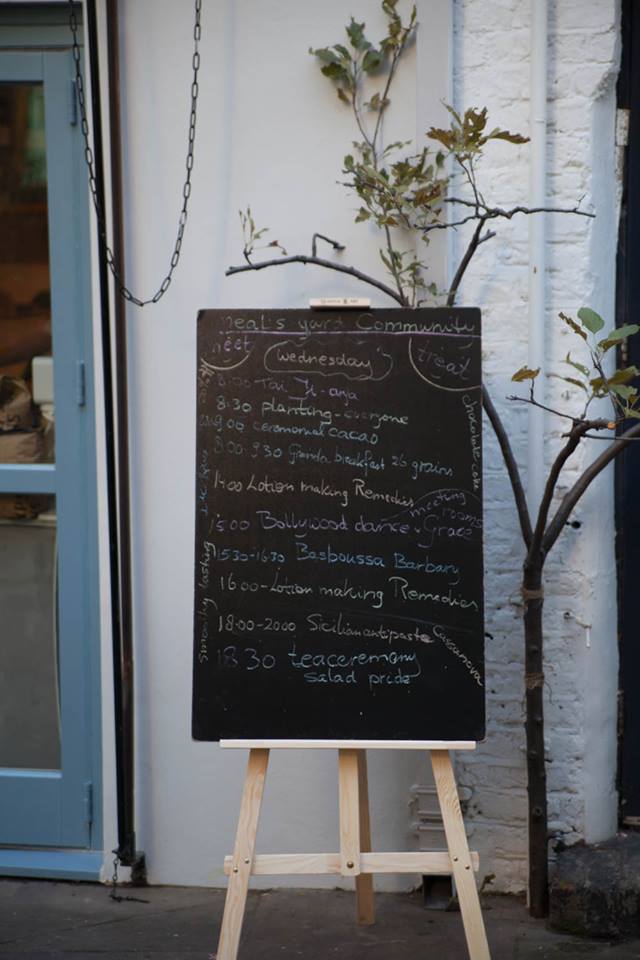 Neal's yard Community
meet
Wednesday
treat
8:00 Tai Ji - anja
8:30 planting - everyone
9:00 ceremonial cacao
8:00-9:30 Granola breakfast 26 grains
14:00 Lotion making Remedies
meeting rooms
15:00 Bollywood dance - Grace
15:30-16:30 Basboussa Barbary
16:00 - Lotion making Remedies
18:00-2000 Sicilian antipasto Casanova
18:30 teaceremony
salad pride
chocolate cake
smoothy tasting